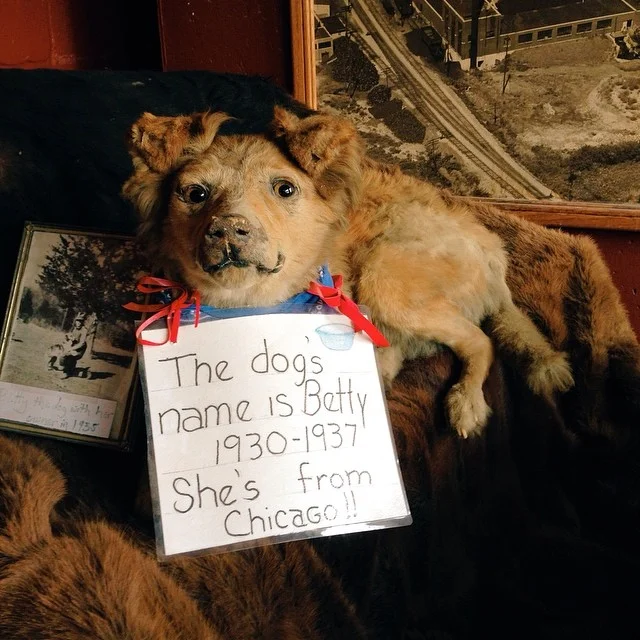 The dog's
name is Betty
1930-1937
She's from
Chicago!!
1935